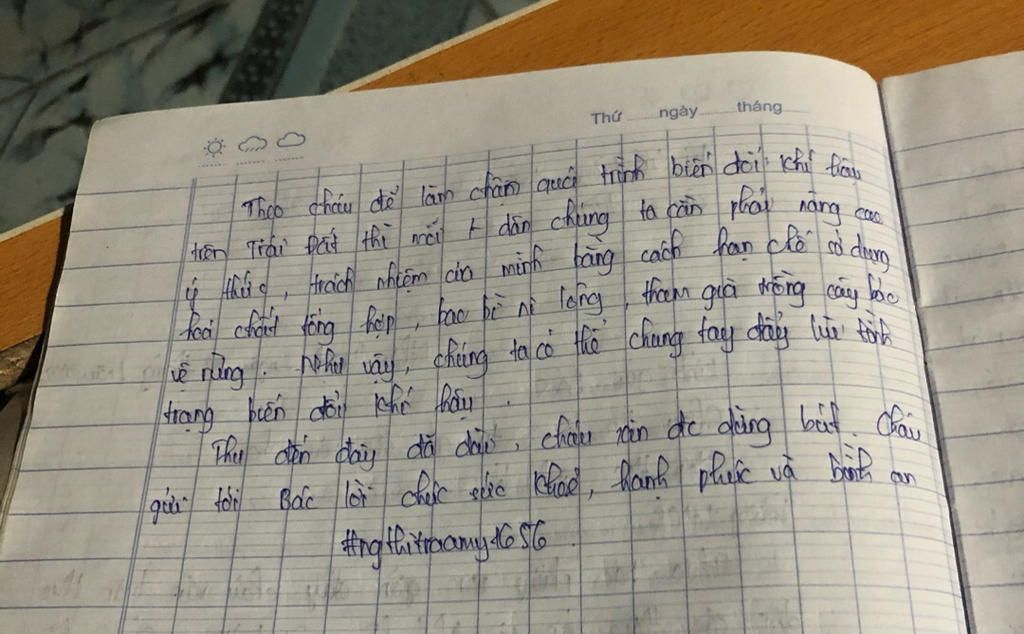 Thứ ngày tháng
Theo cháu để làm chậm quá trình biến đổi khí hậu
trên Trái Đất thì mỗi dân chúng ta cần phải nâng cao
ý thức, trách nhiệm của mình bằng cách hạn chế sử dụng
hoá chất tổng hợp, bao bì ni lông, tham gia trồng cây bảo
vệ rừng. Như vậy, chúng ta có thể chung tay đẩy lùi tình
trạng biến đổi khí hậu.
Thư đến đây đã dài, cháu xin dc dừng bút. Cháu
gửi tới Bác lời chúc sức khoẻ, hạnh phúc và bình an
#ngthitraamy1656.